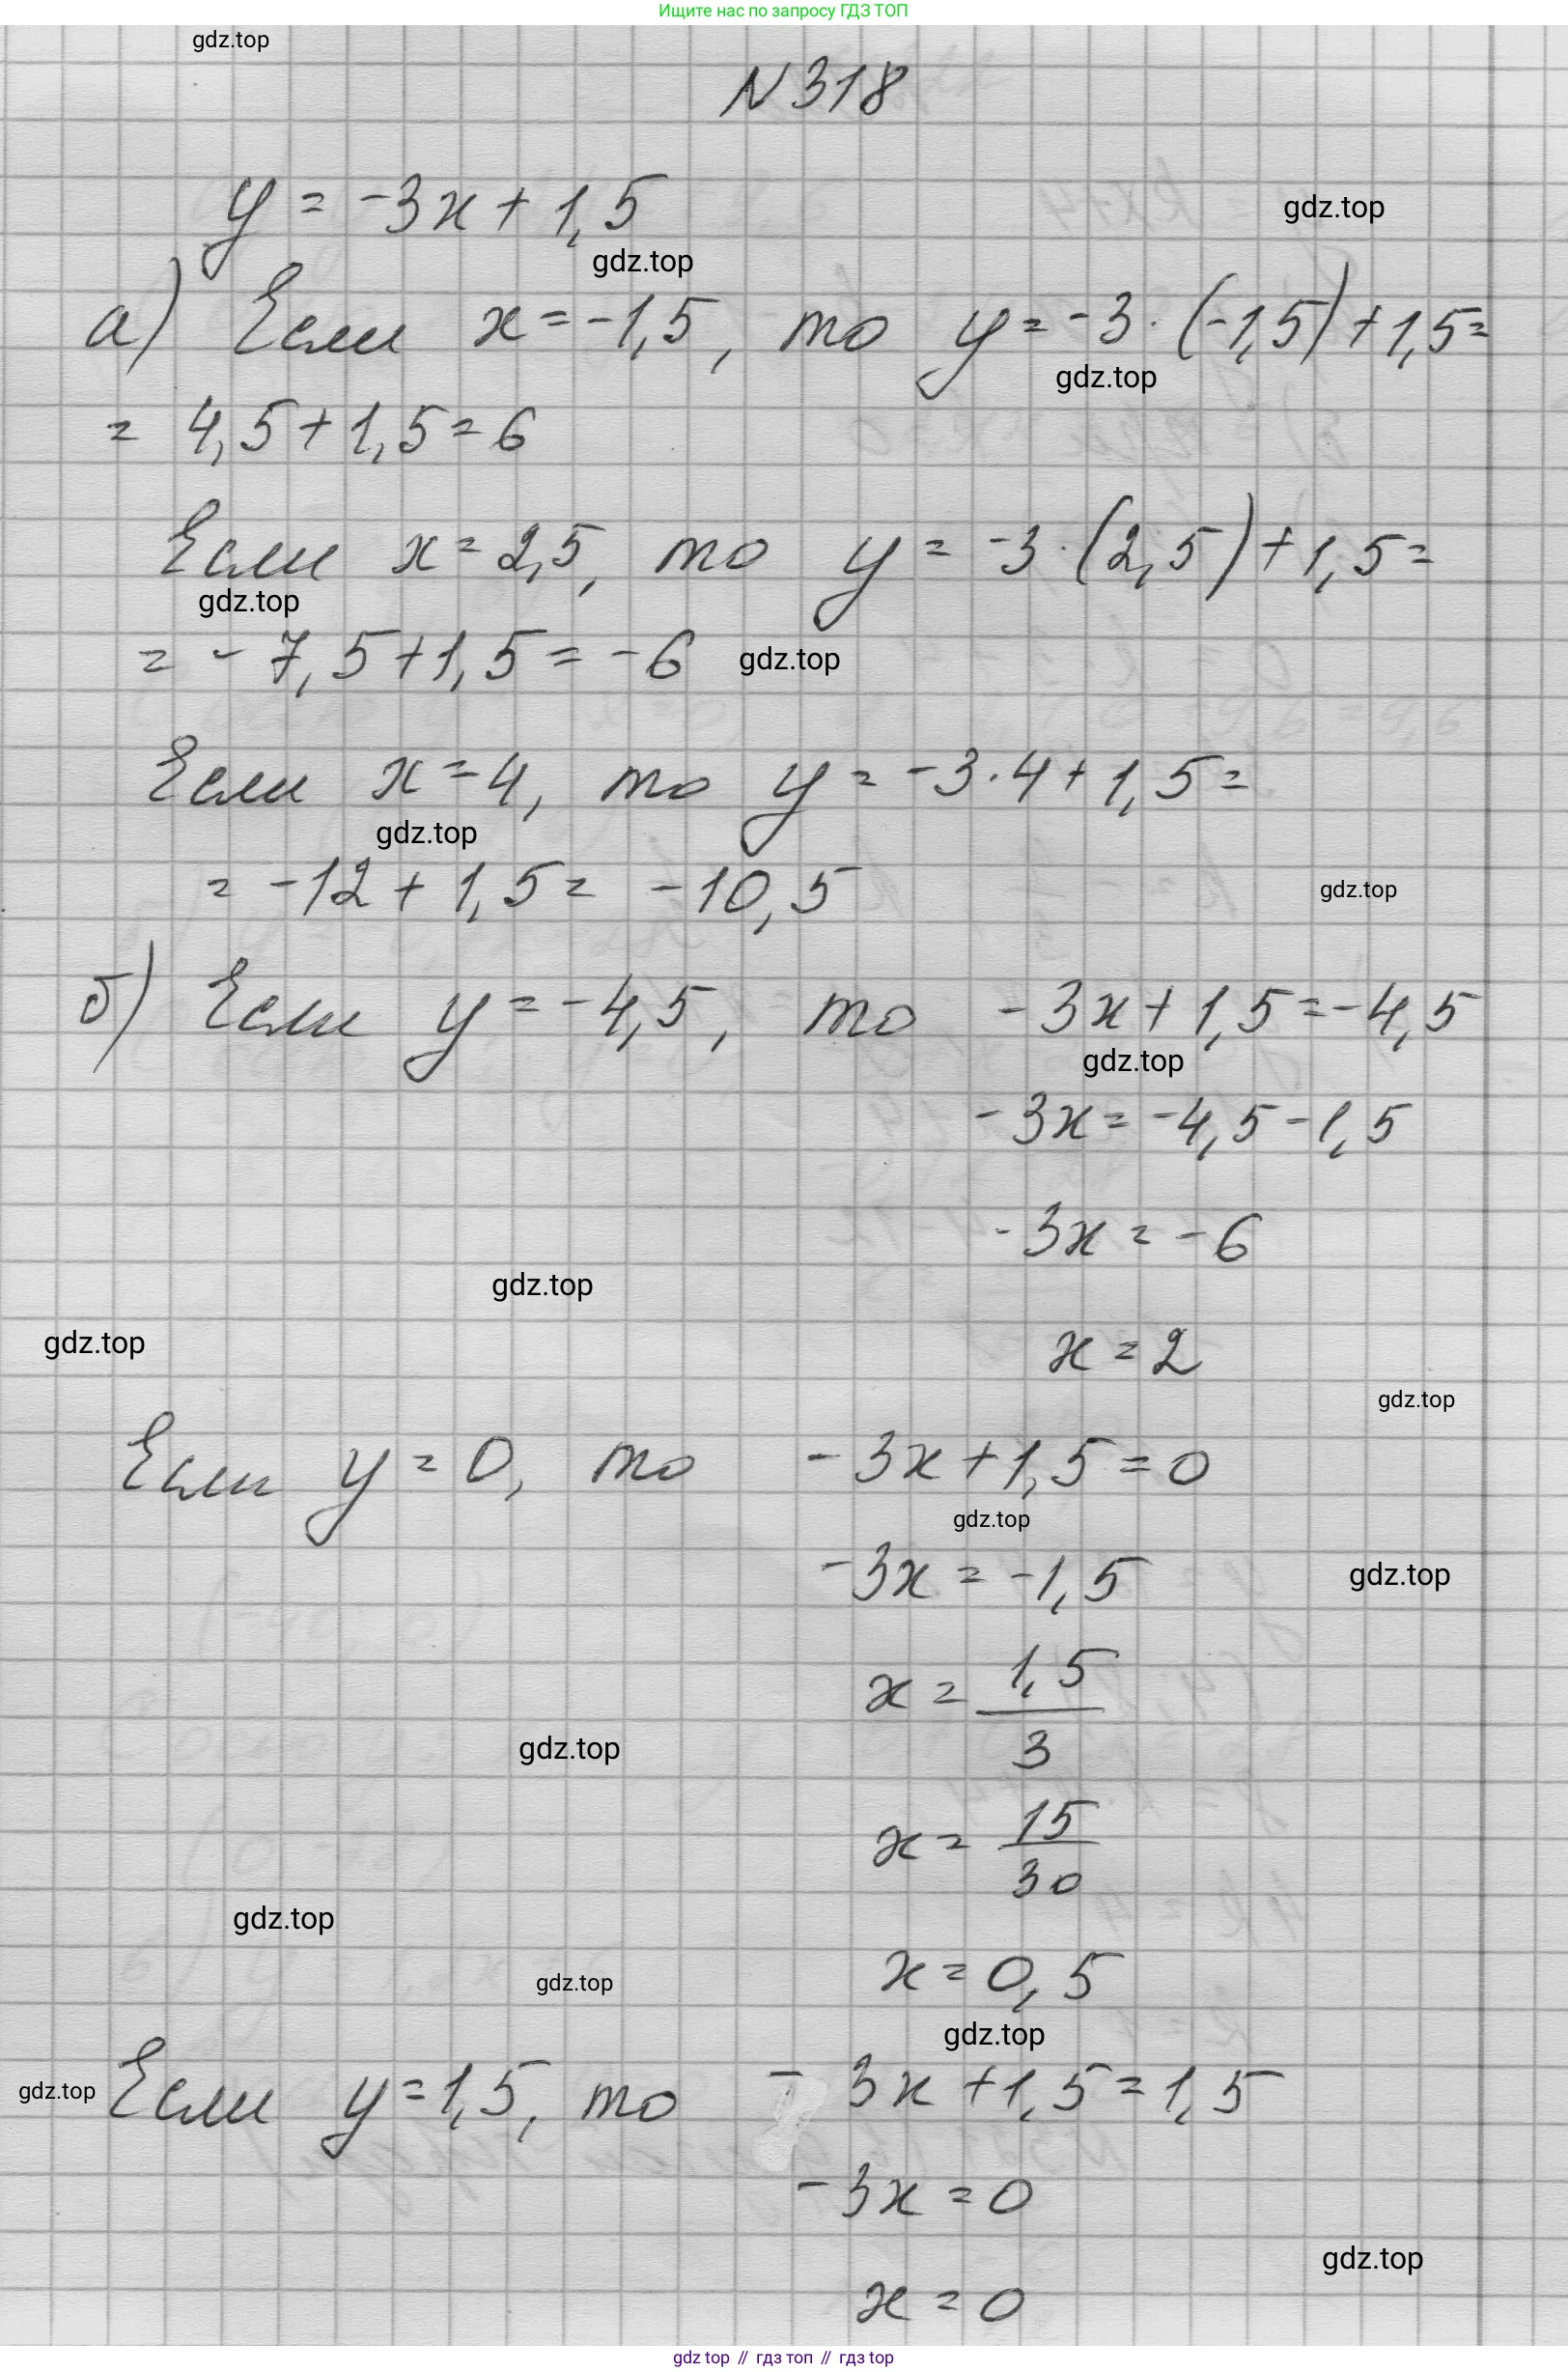 Ищите нас по запросу ГДЗ ТОП
gdz.top
N 318
y = -3x + 1,5
gdz.top
gdz.top
а) Если x = -1,5, то y = -3 · (-1,5) + 1,5 =
gdz.top
= 4,5 + 1,5 = 6
Если x = 2,5, то y = -3 · (2,5) + 1,5 =
gdz.top
= -7,5 + 1,5 = -6
gdz.top
Если x = 4, то y = -3 · 4 + 1,5 =
gdz.top
= -12 + 1,5 = -10,5
gdz.top
б) Если y = -4,5, то -3x + 1,5 = -4,5
gdz.top
-3x = -4,5 - 1,5
-3x = -6
gdz.top
gdz.top
x = 2
gdz.top
Если y = 0, то -3x + 1,5 = 0
gdz.top
-3x = -1,5
gdz.top
x = 1,5/3
gdz.top
x = 15/30
gdz.top
x = 0,5
gdz.top
gdz.top
gdz.top
Если y = 1,5, то -3x + 1,5 = 1,5
-3x = 0
gdz.top
x = 0
gdz top // гдз топ // гдз top